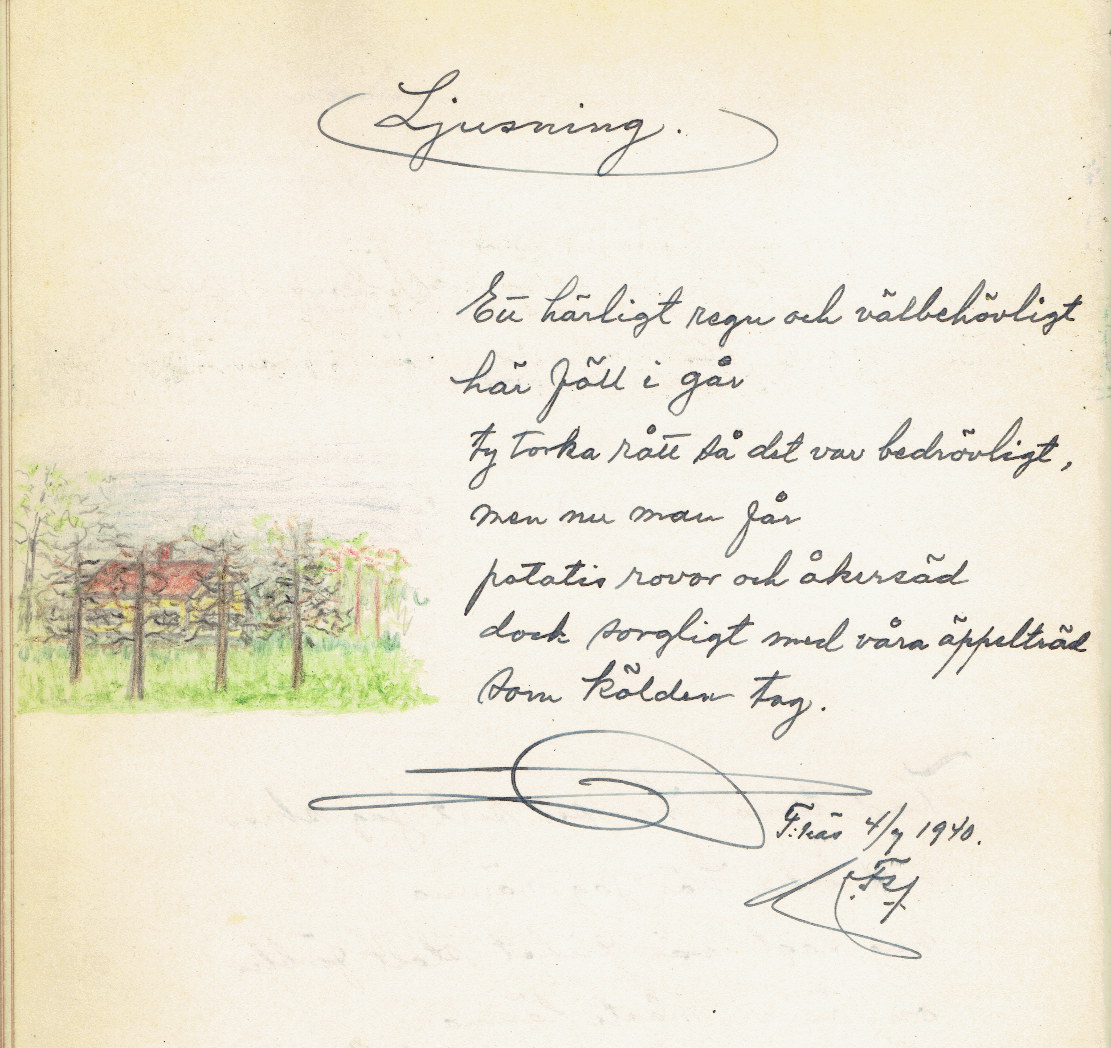 Ljusning.
Ett härligt regn och välbehövligt
här föll i går
ty torka rått så det var bedrövligt,
men nu man får
potatis rovor och åkersäd
dock sorgligt med våra äppelträd
som kölden tog.
4/7 1940.